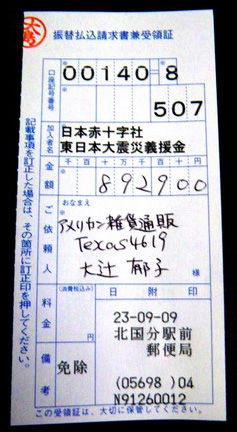 振替払込請求書兼受領証
口座記号番号
00140-8
507
加入者名
日本赤十字社
東日本大震災義援金
金額
千百十万千百十円
892900
ご依頼人
おなまえ
アメリカン雑貨通販
Texas4619
大辻 郁子
様
料金
(消費税込み)
日附印
23-09-09
北国分駅前
郵便局
備考
免除
(05698)04
N91260012
記載事項を訂正した場合は、その箇所に訂正印を押してください。
この受領証は、大切に保管してください。